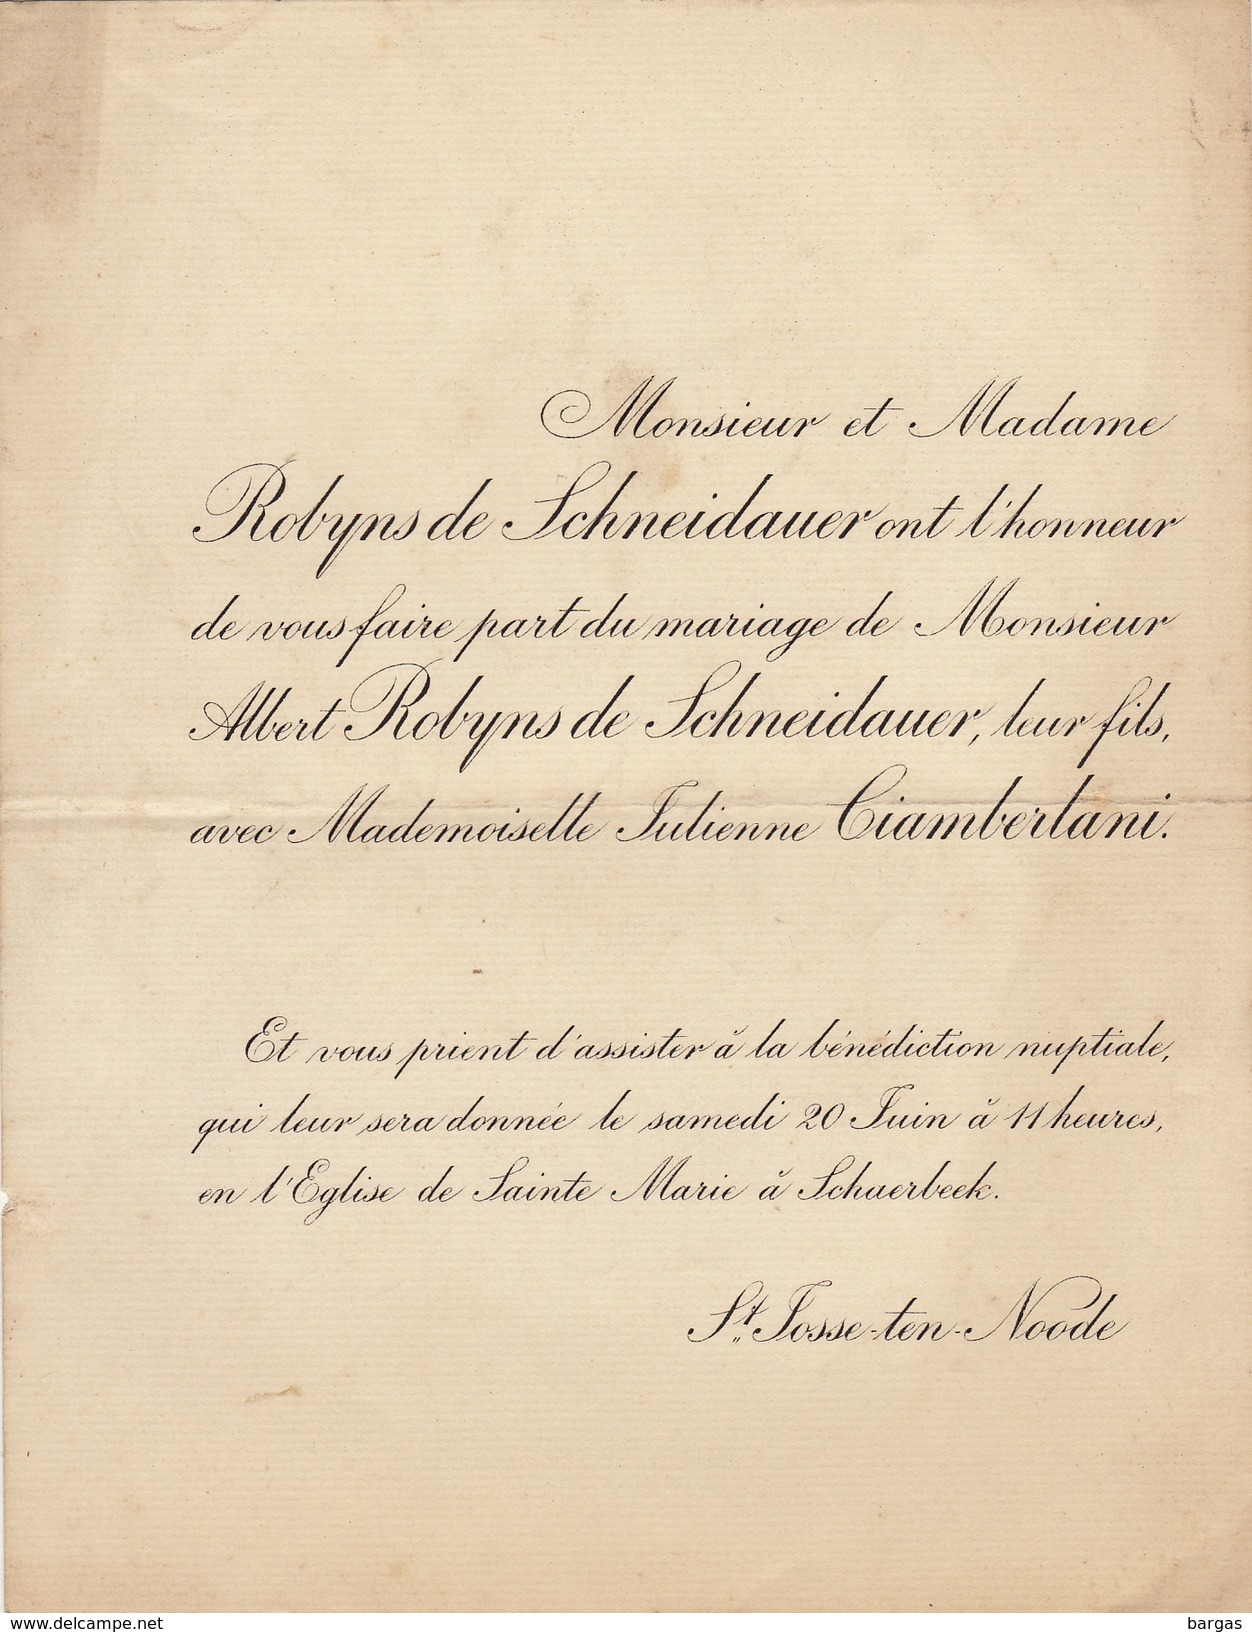 Monsieur et Madame
Robyns de Schneidauer ont l'honneur
de vous faire part du mariage de Monsieur
Albert Robyns de Schneidauer, leur fils,
avec Mademoiselle Julienne Ciamberlani.
Et vous prient d'assister à la bénédiction nuptiale,
qui leur sera donnée le samedi 20 Juin à 11 heures,
en l'Eglise de Sainte Marie à Schaerbeek.
St. Josse-ten-Noode
www.delcampe.net
bargas